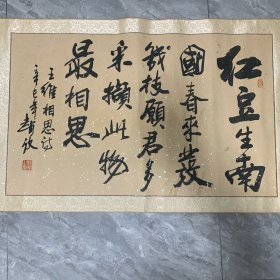 红豆生南
國春來發
幾枝願君多
采擷此物
最相思
王維相思詩
辛巳年